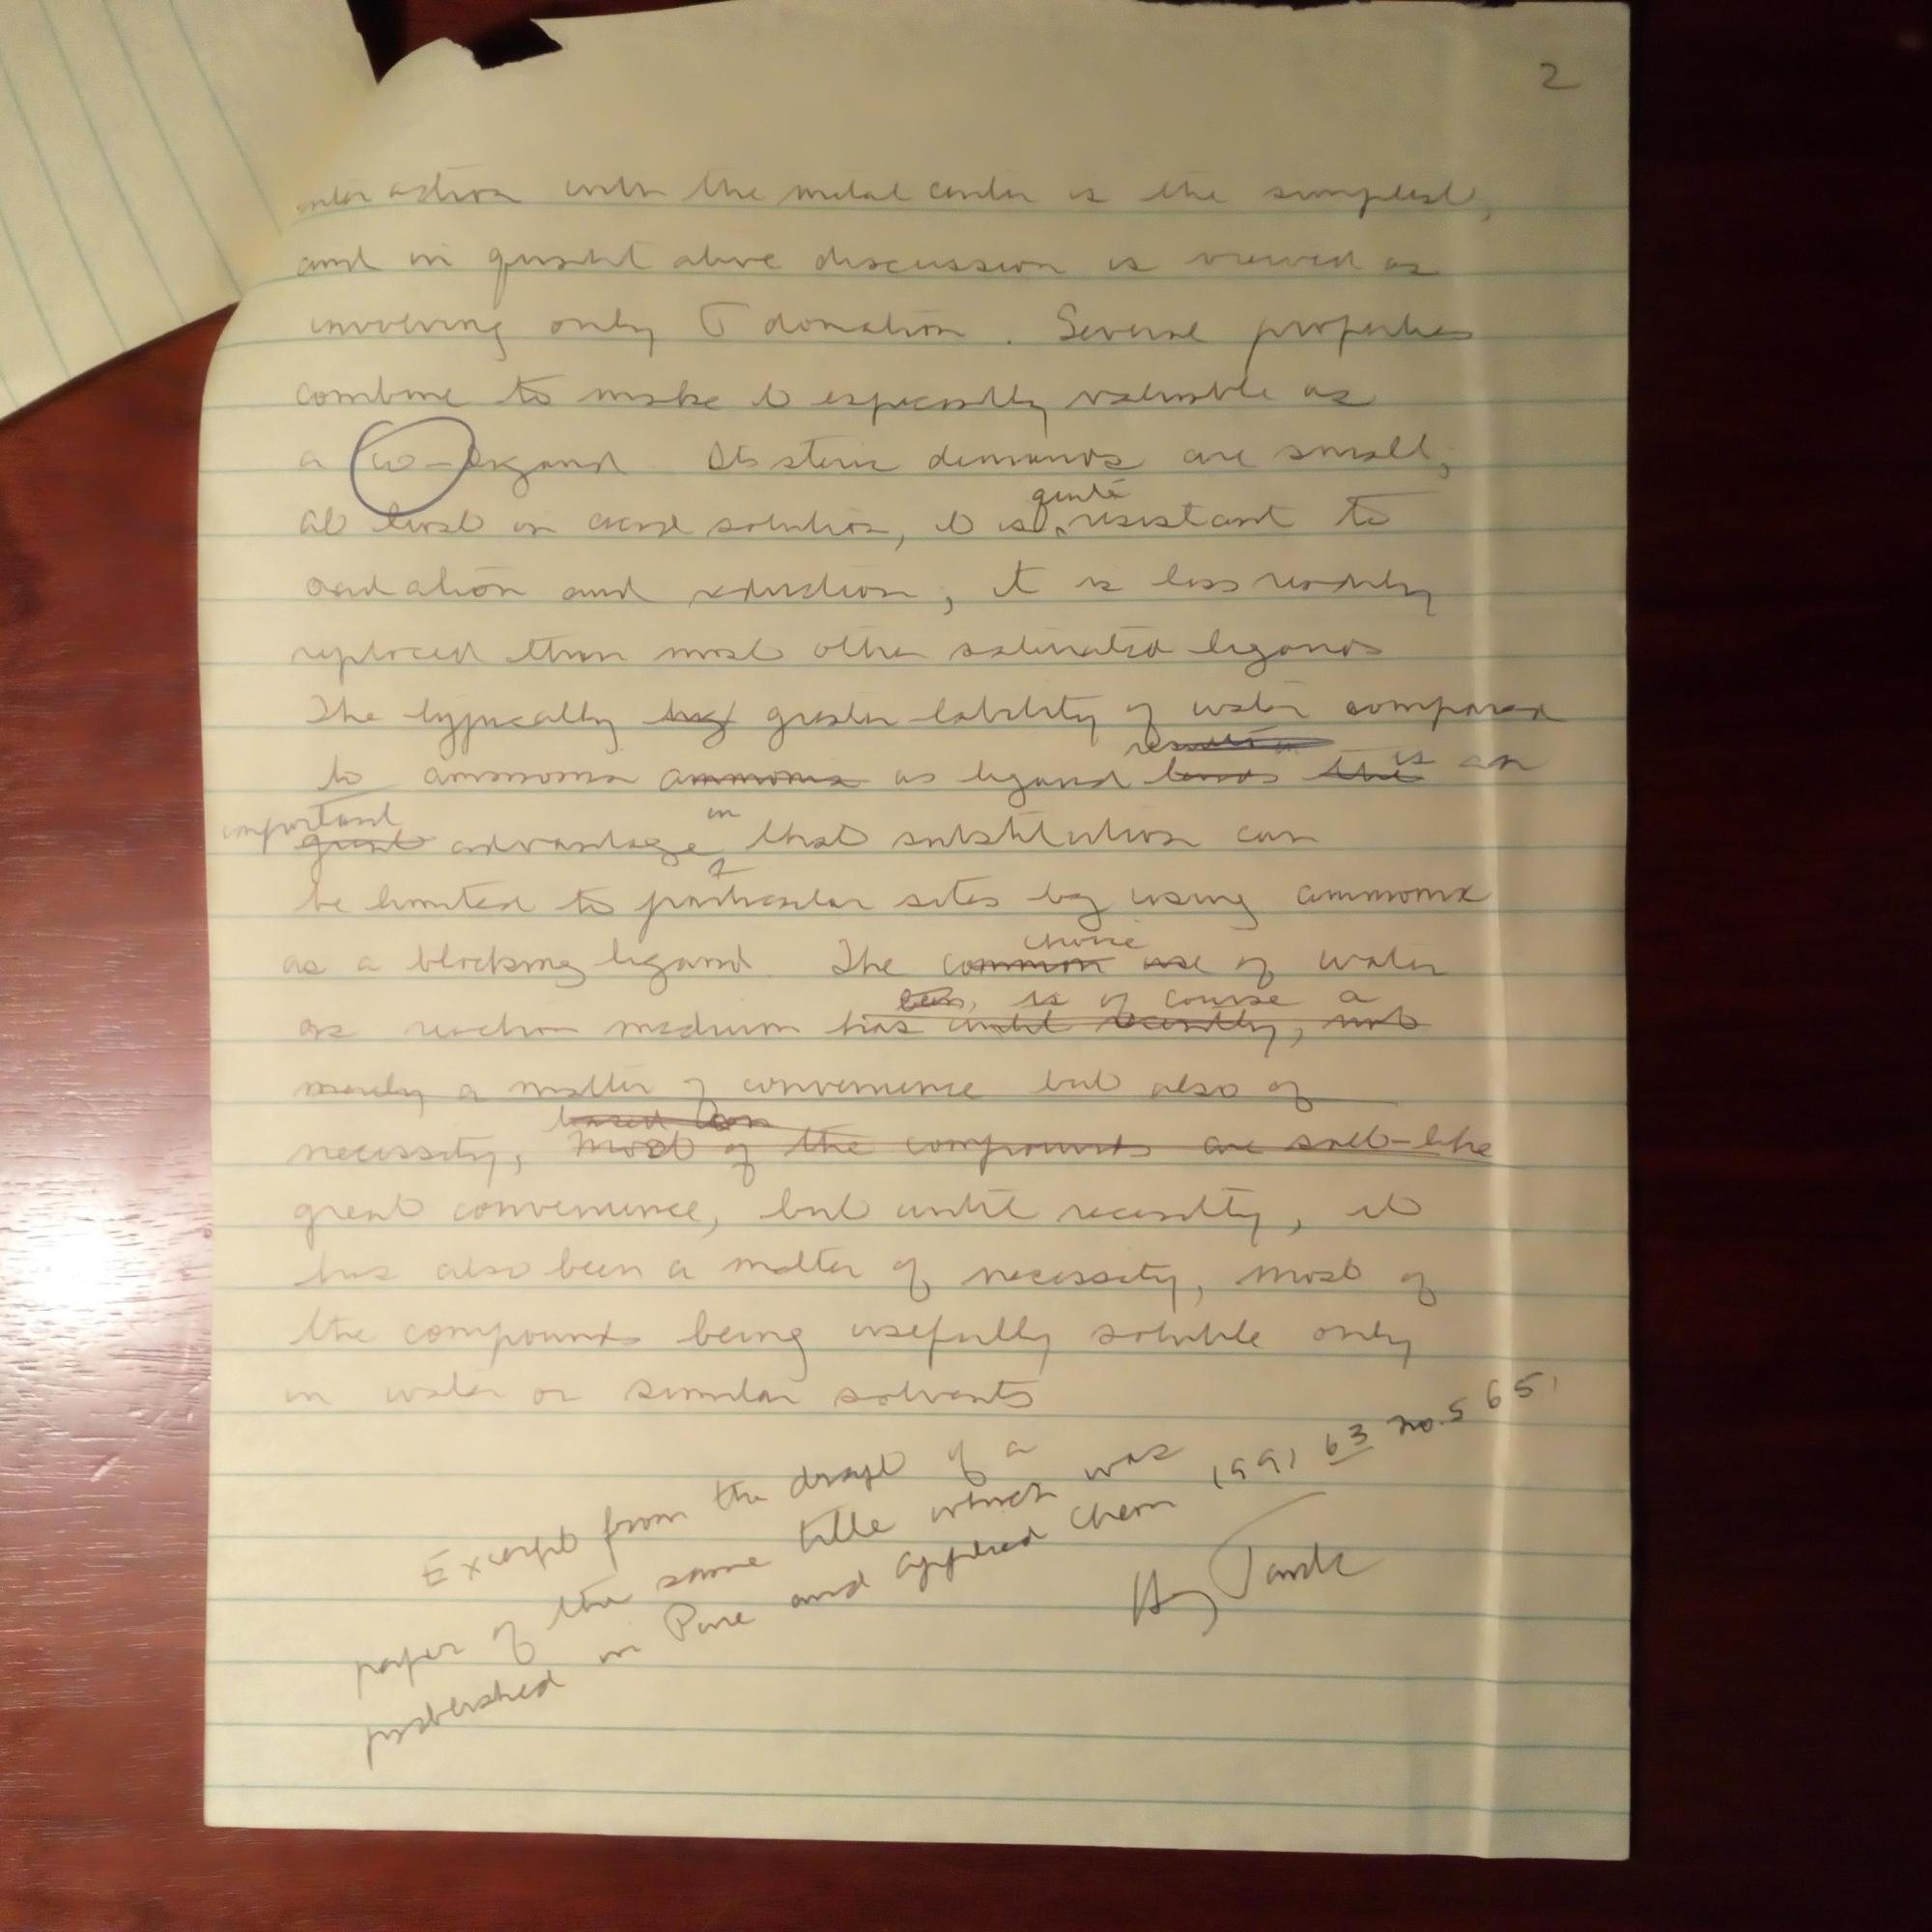 2
interaction with the metal center is the simplest,
and in qualitative discussion is viewed as
involving only σ donation. Several properties
combine to make it especially valuable as
a co-ligand. Its steric demands are small;
quite
at least in acid solution, it is resistant to
oxidation and reduction; it is less readily
replaced than most other saturated ligands
The typically greater lability of water compared
is
to ammonia ammonia as ligand this an
important in
great advantage that substitution can
be limited to particular sites by using ammonia
as a blocking ligand. The common use of water
choice
been, is of course a
as reaction medium has until recently, not
merely a matter of convenience but also of
based on
necessity, Most of the compounds are salt-like
great convenience, but until recently, it
has also been a matter of necessity, most of
the compounds being usefully soluble only
in water or similar solvents
Excerpt from the draft of a
paper of the same title which was
published in Pure and Applied Chem 1991 63 no. 5 651
Henry Taube